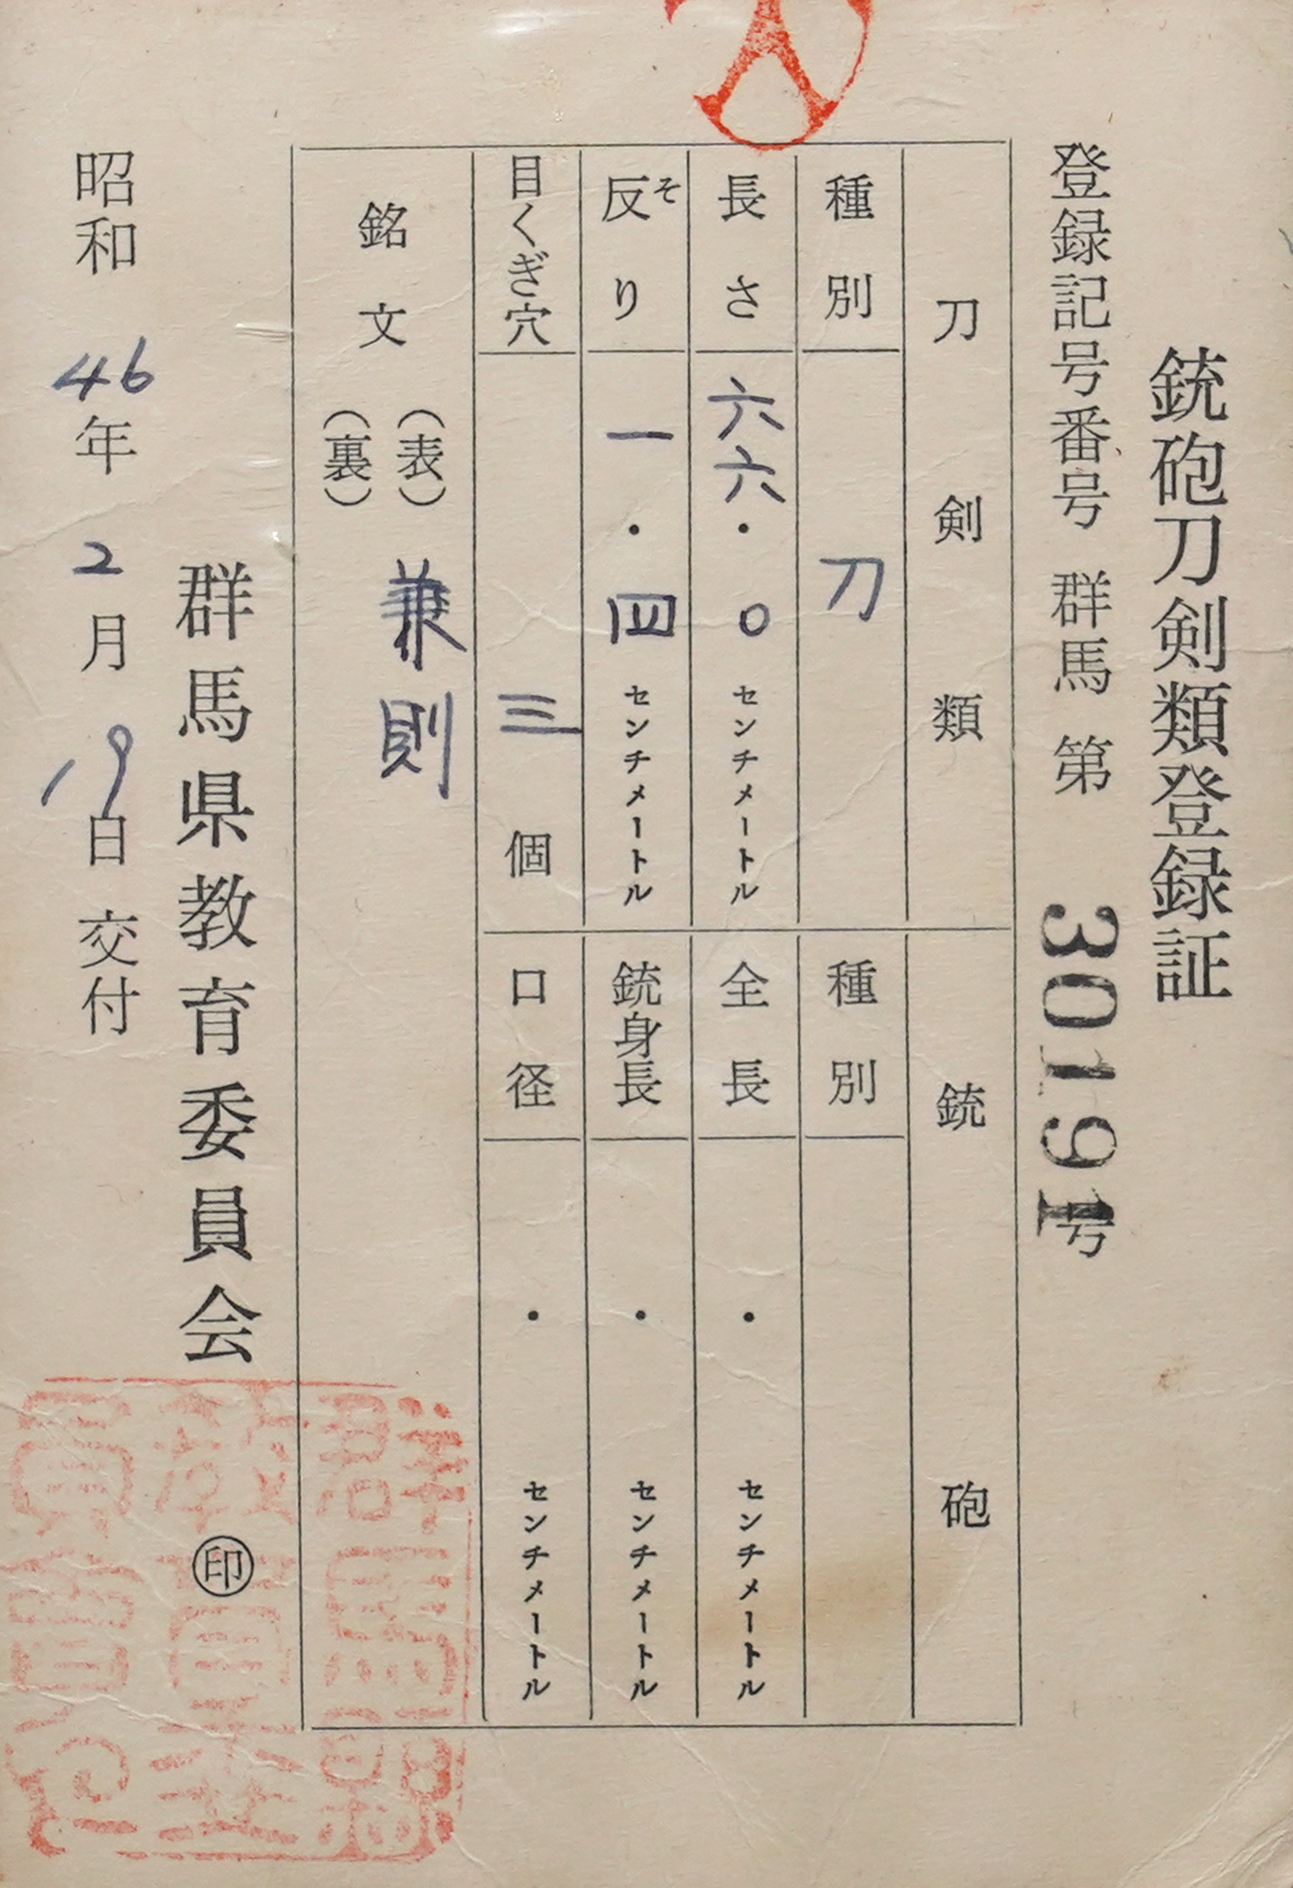 銃砲刀剣類登録証
登録記号番号 群馬 第 30191号
刀剣類
種別 刀
長さ 六六・〇センチメートル
反り 一・四センチメートル
そ
目くぎ穴 三個
銃砲
種別
全長 ・ センチメートル
銃身長 ・ センチメートル
口径 ・ センチメートル
銘文 (表) 兼則
(裏)
群馬県教育委員会 印
昭和 46年 2月 19日 交付